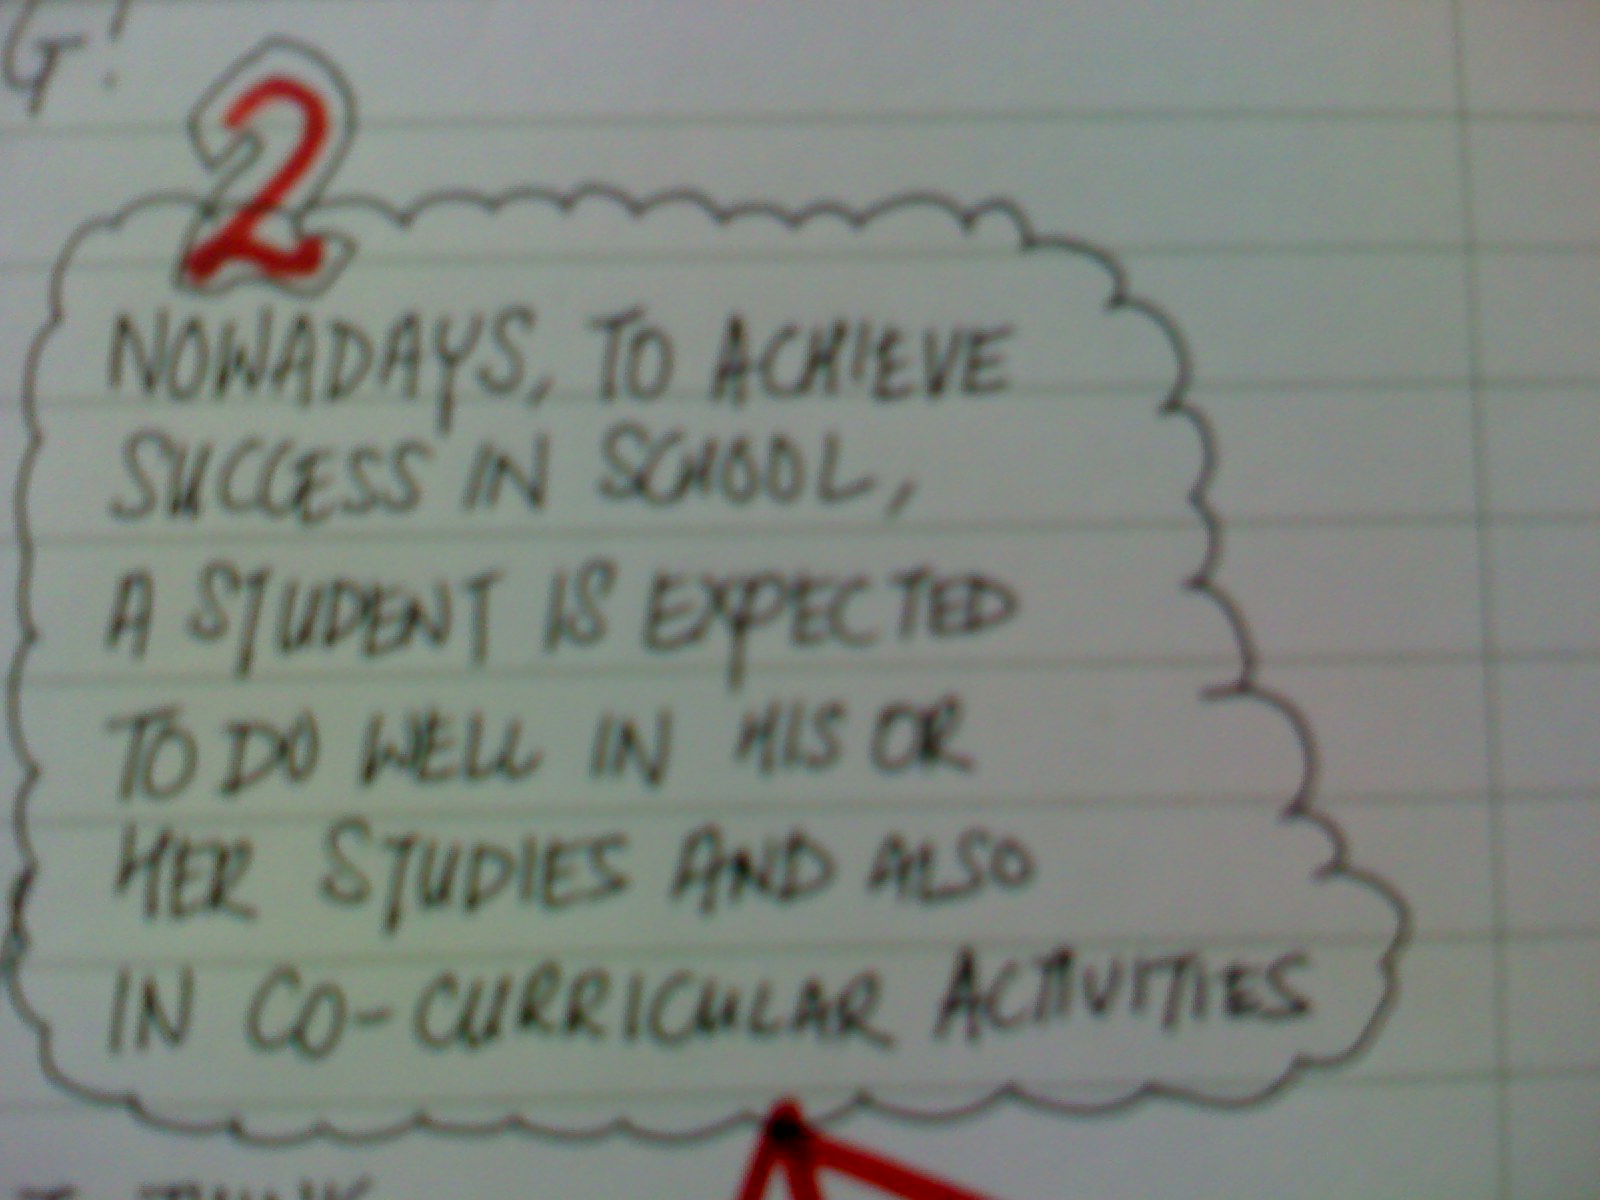 G!
2
NOWADAYS, TO ACHIEVE
SUCCESS IN SCHOOL,
A STUDENT IS EXPECTED
TO DO WELL IN HIS OR
HER STUDIES AND ALSO
IN CO-CURRICULAR ACTIVITIES
THINK